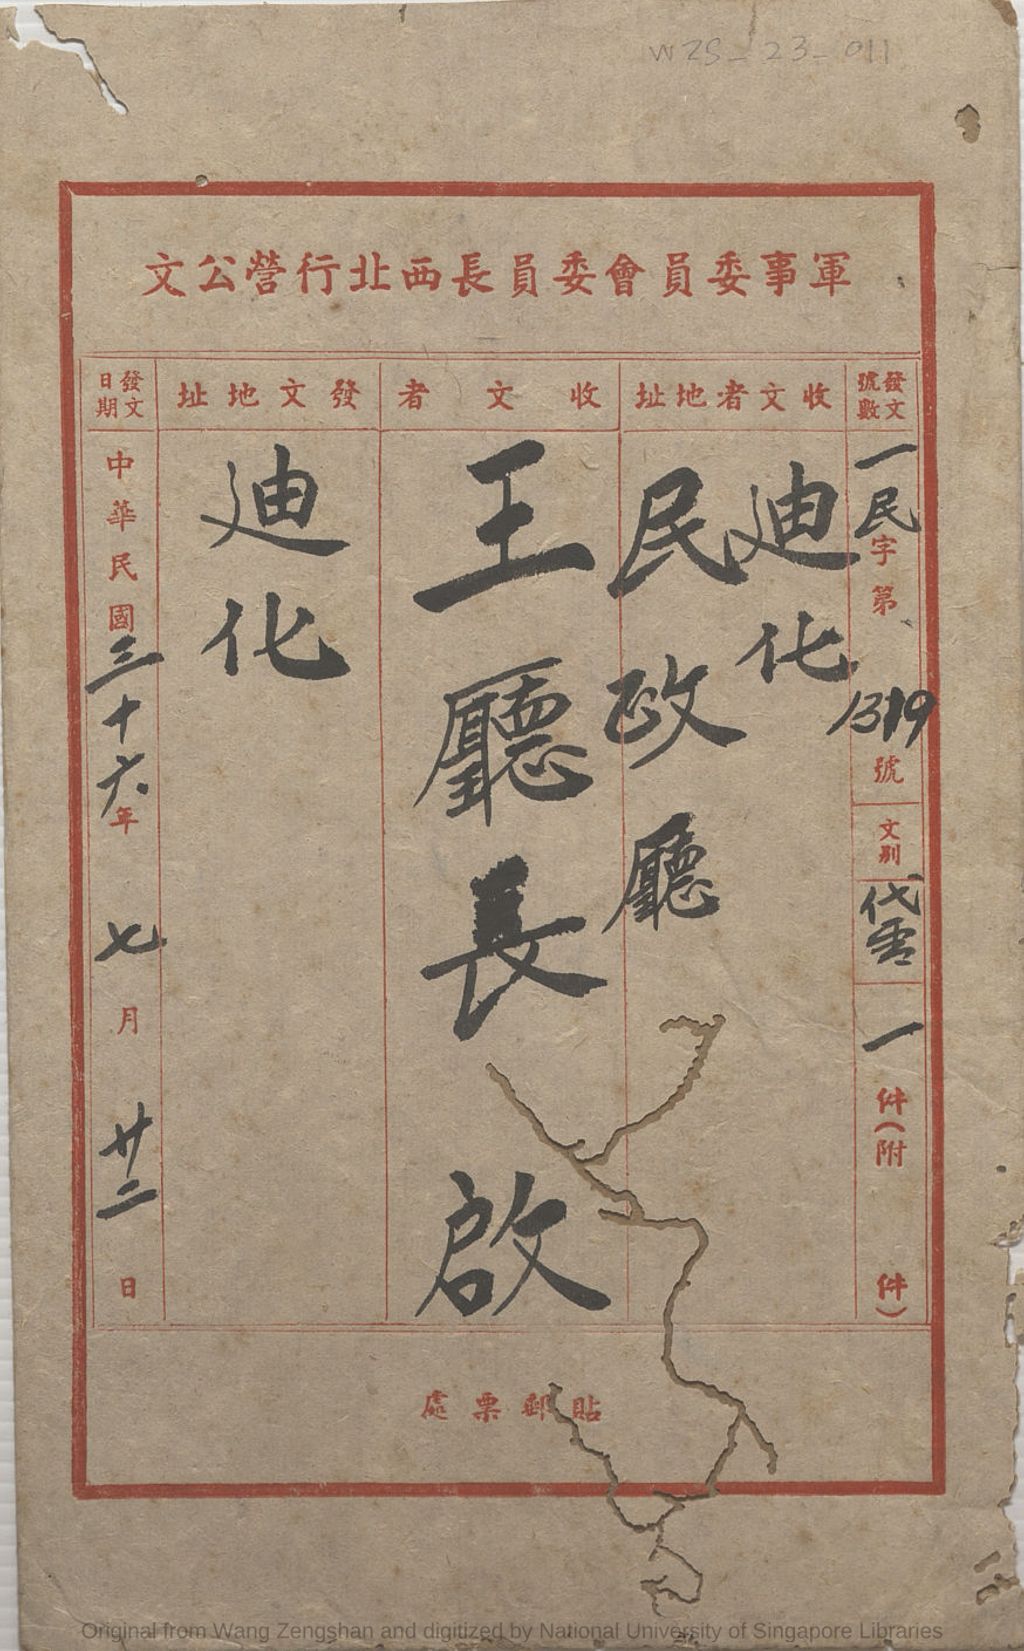 WZS-23-011
軍事委員會委員長西北行營公文
發文號數
一民字第1319號
文別
代電
一件(附 件)
收文者地址
迪化
民政廳
收文者
王廳長 啟
發文地址
迪化
發文日期
中華民國三十六年七月廿二日
貼郵票處
Original from Wang Zengshan and digitized by National University of Singapore Libraries